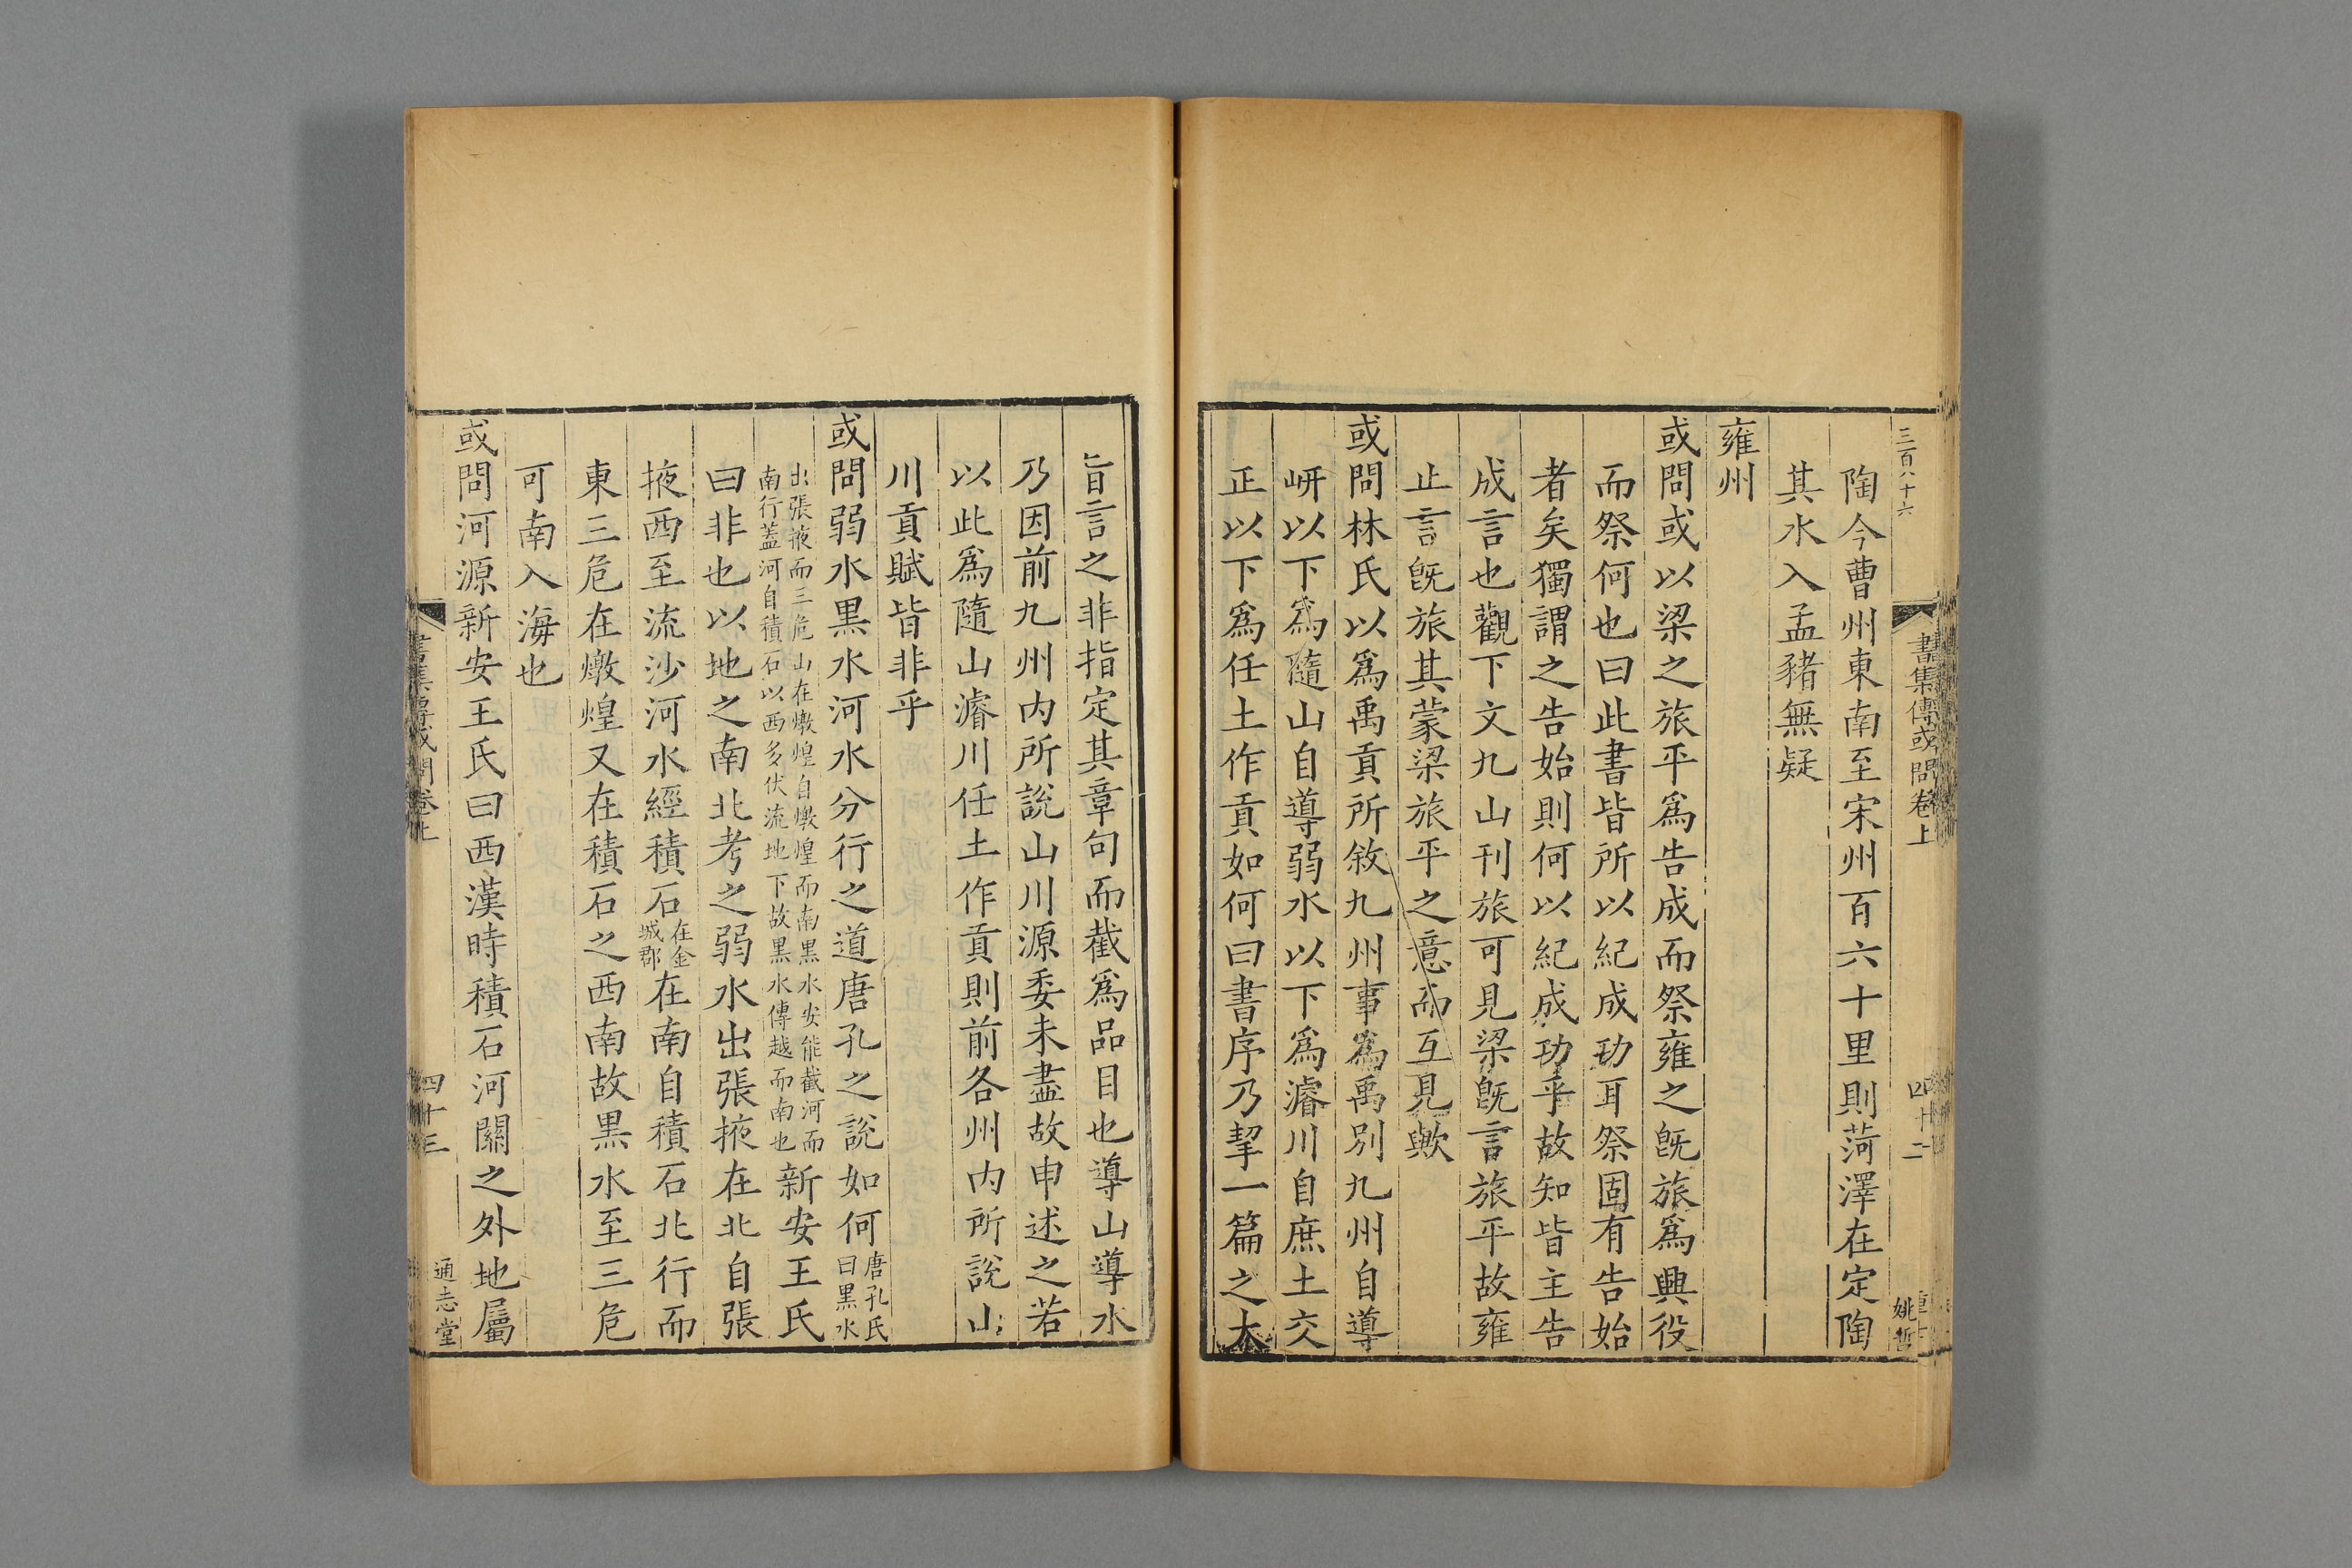 三百八十六
書集傳或問卷上
四十二
陶今曹州東南至宋州百六十里則菏澤在定陶
其水入孟豬無疑
雍州
或問或以梁之旅平爲告成而祭雍之旣旅爲興役
而祭何也曰此書皆所以紀成功耳祭固有告始
者矣獨謂之告始則何以紀成功乎故知皆主告
成言也觀下文九山刊旅可見梁旣言旅平故雍
止言旣旅其蒙梁旅平之意而互見歟
或問林氏以爲禹貢所敘九州事爲禹別九州自導
岍以下爲隨山自導弱水以下爲濬川自庶土交
正以下爲任土作貢如何曰書序乃挈一篇之大
旨言之非指定其章句而截爲品目也導山導水
乃因前九州内所說山川源委未盡故申述之若
以此爲隨山濬川任土作貢則前各州内所說山
川貢賦皆非乎
或問弱水黑水河水分行之道唐孔之說如何唐孔氏
曰黑水
出張掖而三危山在燉煌自燉煌而南黑水安能截河而
南行蓋河自積石以西多伏流地下故黑水傳越而南也
新安王氏
曰非也以地之南北考之弱水出張掖在北自張
掖西至流沙河水經積石在金
城郡
在南自積石北行而
東三危在燉煌又在積石之西南故黑水至三危
可南入海也
或問河源新安王氏曰西漢時積石河關之外地屬
書集傳或問卷上
四十三
通志堂